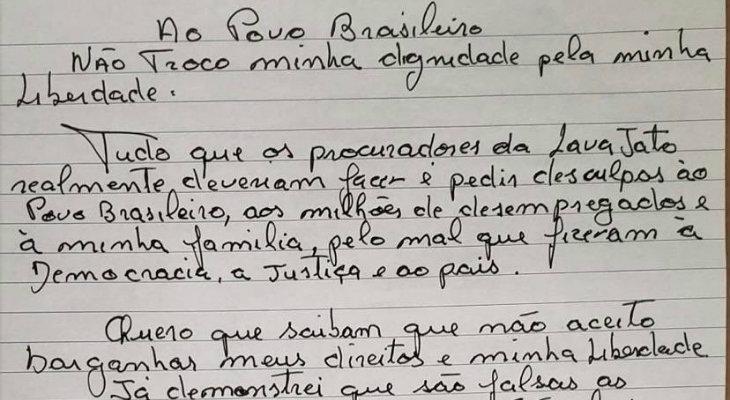 Ao Povo Brasileiro
Não Troco minha dignidade pela minha
Liberdade.
Tudo que os procuradores da Lava Jato
realmente deveriam fazer é pedir desculpas ao
Povo Brasileiro, aos milhões de desempregados e
à minha familia, pelo mal que fizeram à
Democracia, a Justiça e ao pais.
Quero que saibam que não aceito
barganhar meus direitos e minha Liberdade
Já demonstrei que são falsas as